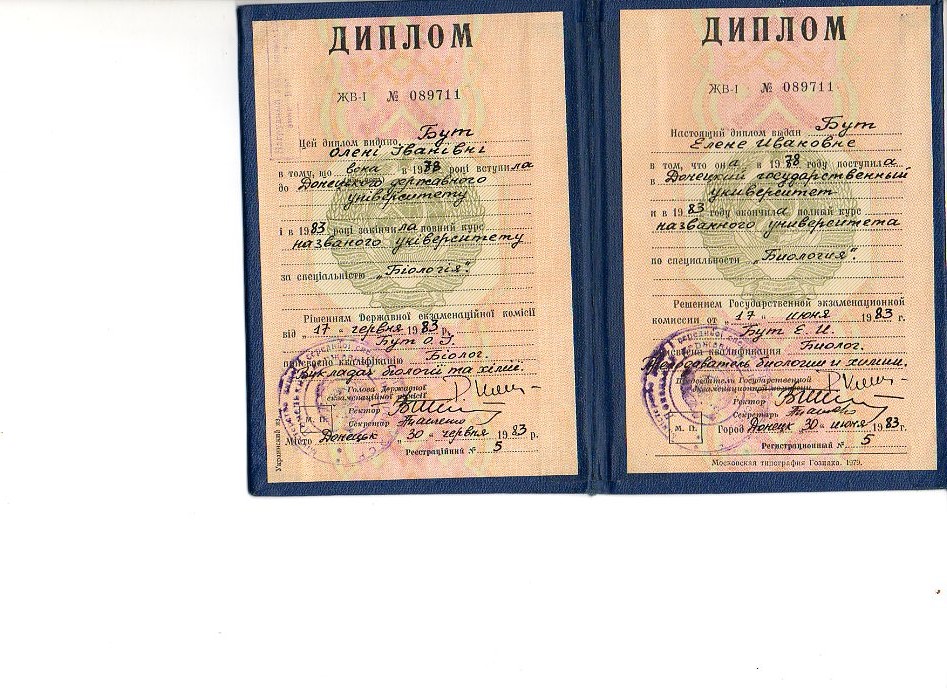 ДИПЛОМ
ЖВ-I № 089711
Цей диплом видано Бут
Олені Іванівні
в тому, що вона в 1978 році вступила
до Донецького державного
університету
і в 1983 році закінчила повний курс
названого університету
за спеціальністю „Біологія".
Рішенням Державної екзаменаційної комісії
від „17" червня 1983 р.
Бут О. І.
присвоєно кваліфікацію Біолог.
Викладач біології та хімії.
Голова Державної
екзаменаційної комісії
Ректор
Секретар
М. П.
Місто Донецьк „30" червня 1983 р.
Реєстраційний № 5
Украинский яз.
ДИПЛОМ
ЖВ-I № 089711
Настоящий диплом выдан Бут
Елене Ивановне
в том, что она в 1978 году поступила
в Донецкий государственный
университет
и в 1983 году окончила полный курс
названного университета
по специальности „Биология".
Решением Государственной экзаменационной
комиссии от „17" июня 1983 г.
Бут Е. И.
присвоена квалификация Биолог.
Преподаватель биологии и химии.
Председатель Государственной
экзаменационной комиссии
Ректор
Секретарь
М. П.
Город Донецк „30" июня 1983 г.
Регистрационный № 5
Московская типография Гознака. 1979.